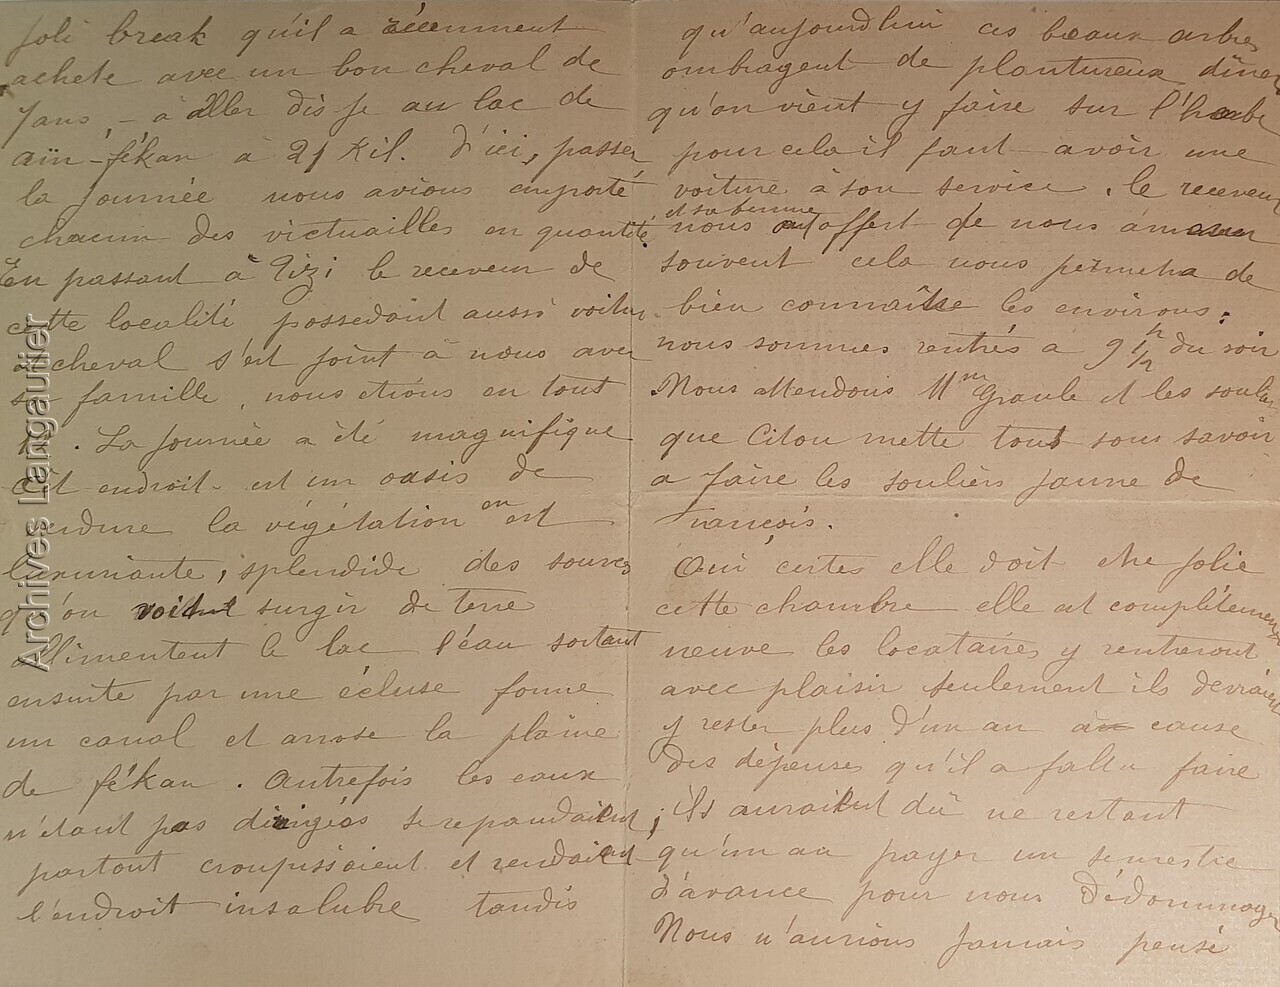 Joli break qu'il a récemment
achete avec un bon cheval de
7 ans, - à aller dis je au lac de
aïn-fékan à 21 Kil. d'ici, passer
la Journée nous avions emporté
chacun des victuailles en quantité.
En passant à Tizi le receveur de
cette localité possedant aussi voiture
& cheval s'est joint à nous avec
sa famille, nous étions en tout
. La Journée a été magnifique
Cet endroit est un oasis de
verdure la végétation en est
luxuriante, splendide des sources
qu'on voit surgir de terre
allimentent le lac l'eau sortant
ensuite par une écluse forme
un canal et arrose la plaine
de fékan. Autrefois les eaux
n'étant pas dirigées se repandaient
partout croupissaient et rendaient
l'endroit insalube tandis
qu'aujourdhui ces beaux arbres
ombragent de plantureux dîner
qu'on vient y faire sur l'herbe
pour cela il faut avoir une
voiture à son service. le receveur
et sa femme
nous ont offert de nous amener
souvent cela nous permetra de
bien connaître les environs.
nous sommes rentrés a 9 h 1/2 du soir
Nous attendons Mme Graule et les souliers
que Titou mette tout son savoir
a faire les souliers jaune de
François.
Oui certes elle doit etre jolie
cette chambre elle est complétement
neuve les locataires y rentreront
avec plaisir seulement ils devraient
y rester plus d'un an à cause
des dépenses qu'il a fallu faire
ils auraient dû ne restant
qu'un an payer un semestre
d'avance pour nous dédommager
Nous n'aurions Jamais pensé
Archives Langautier